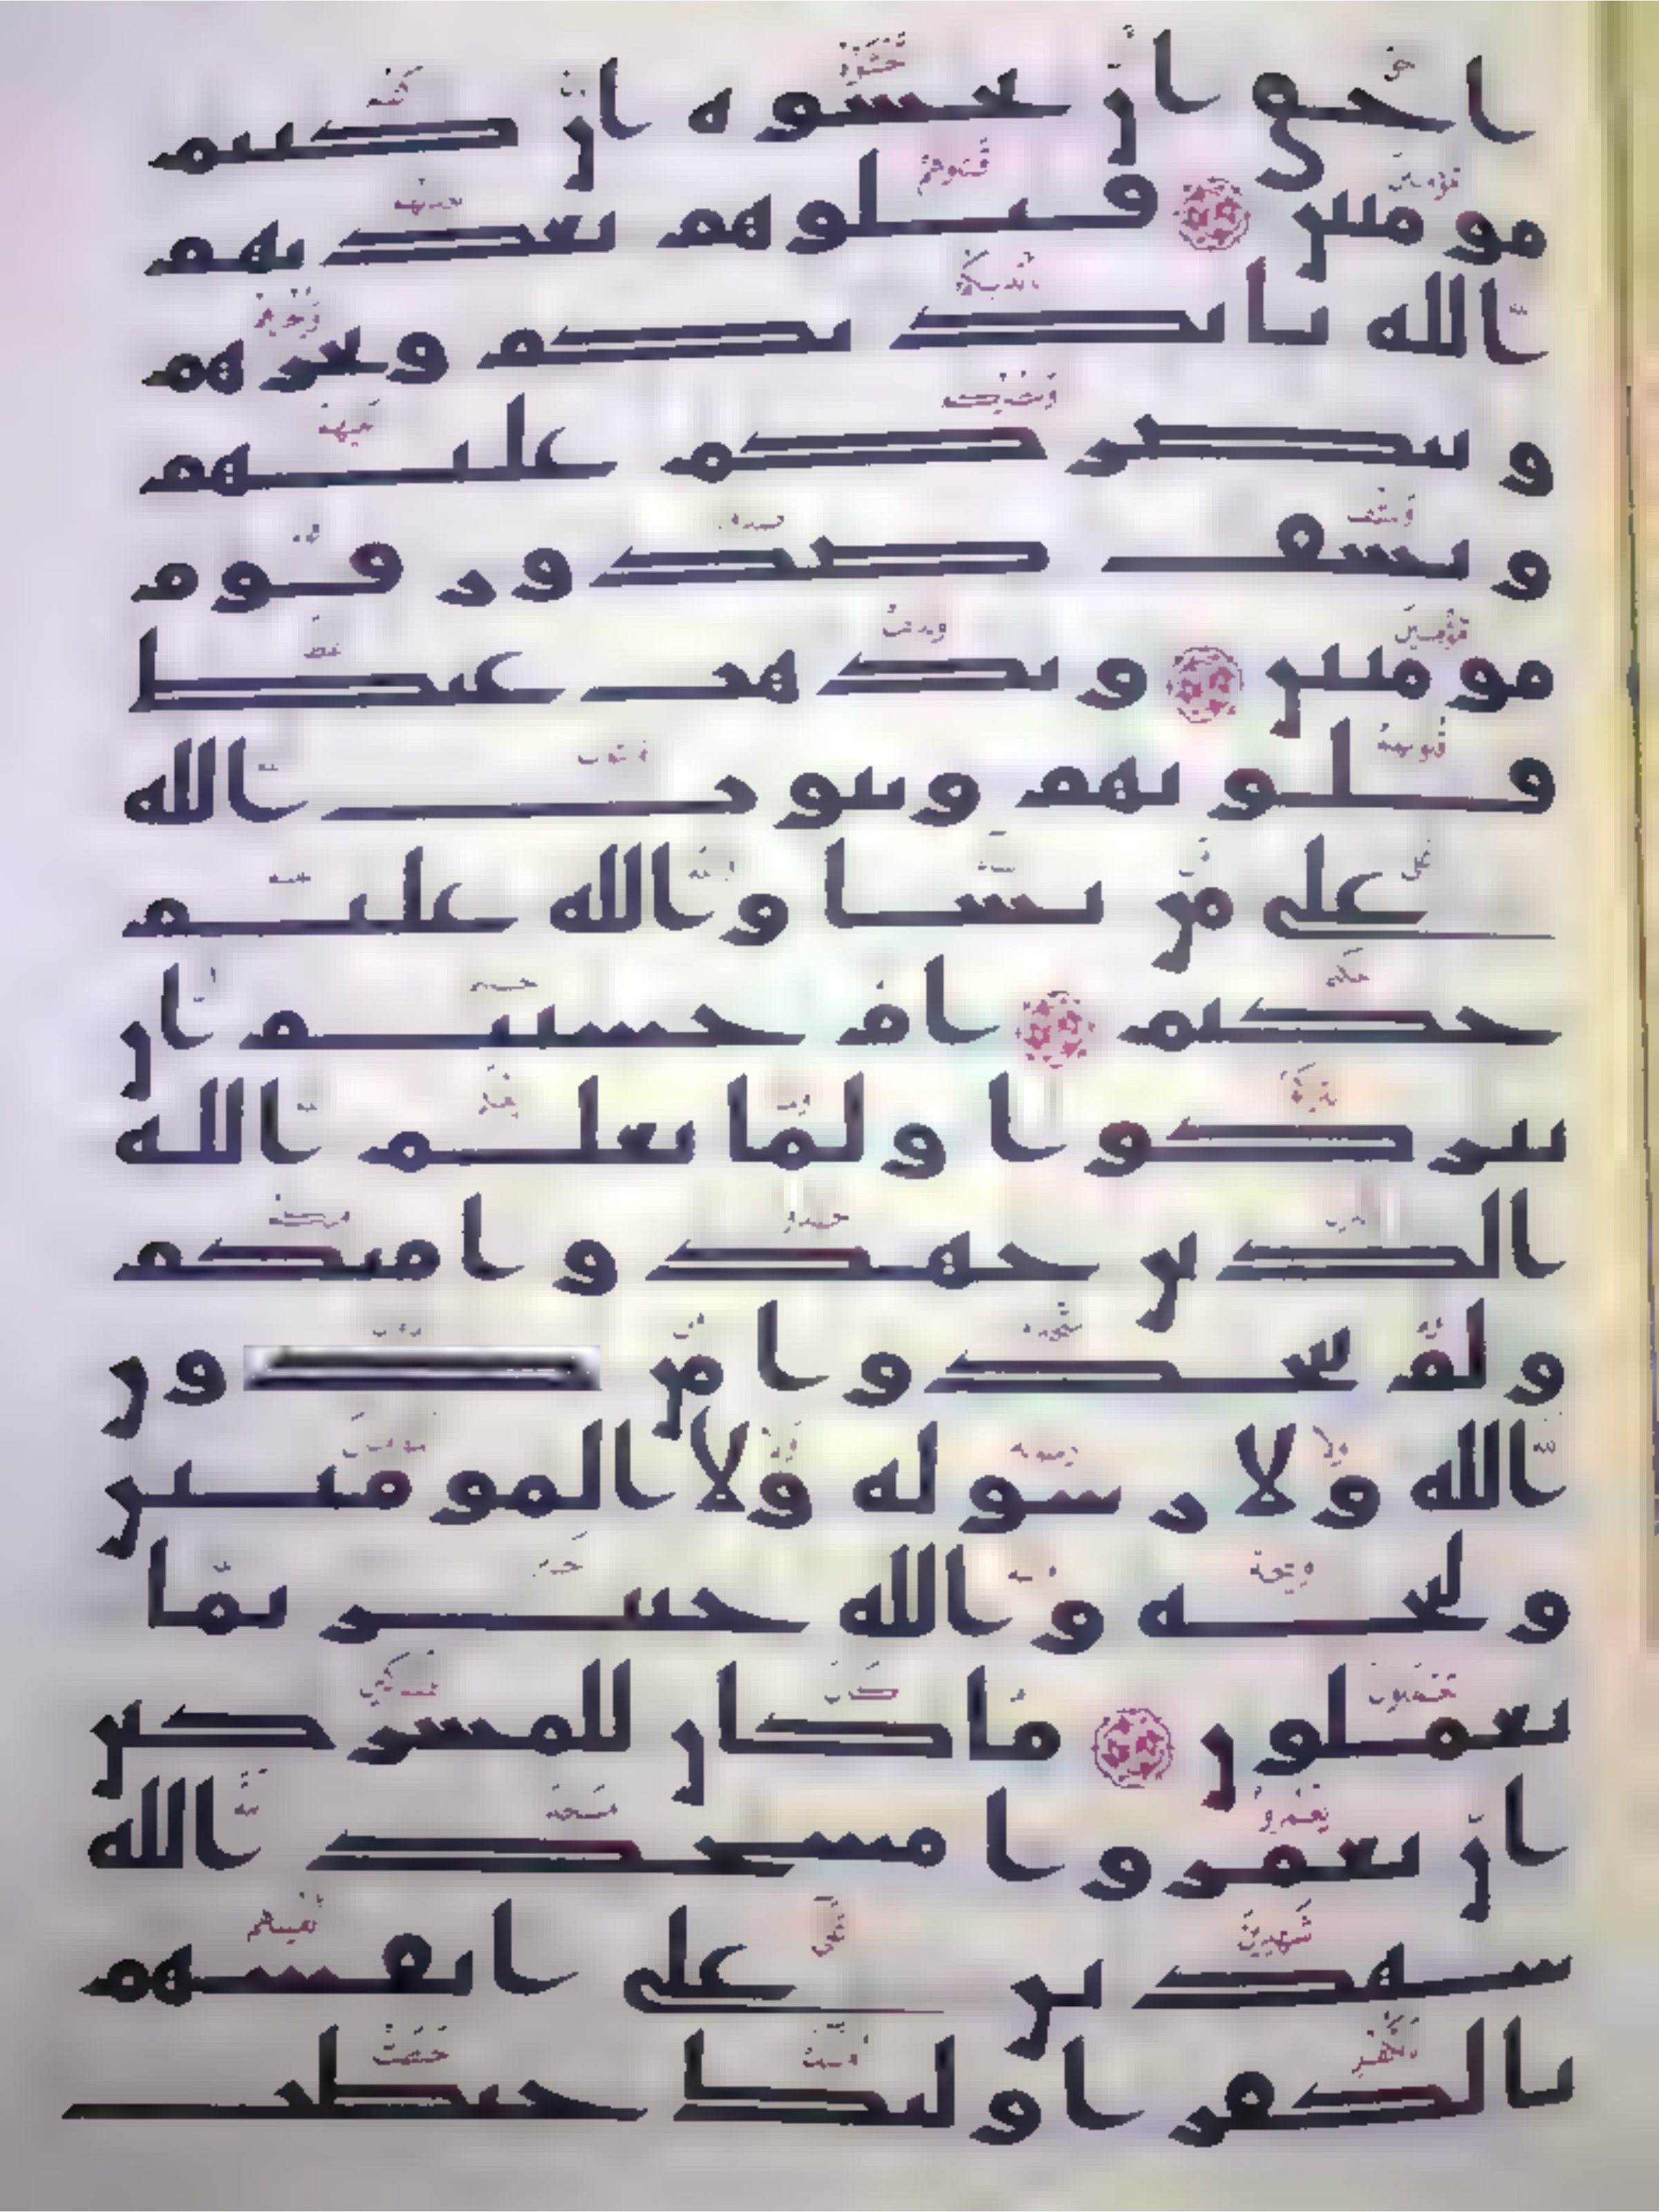 احق ان تخشوه ان كنتم
مومنين قتلوهم يعذبهم
الله بايديكم ويخزهم
وينصركم عليهم
ويشف صدور قوم
مومنين ويذهب غيظ
قلوبهم ويتوب الله
على من يشا والله عليم
حكيم ام حسبتم ان
تتركوا ولما يعلم الله
الذين جهدوا منكم
ولم يتخذوا من دون
الله ولا رسوله ولا المومنين
وليجه والله خبير بما
تعملون ما كان للمشركين
ان يعمروا مسجد الله
شهدين على انفسهم
بالكفر اوليك حبطت